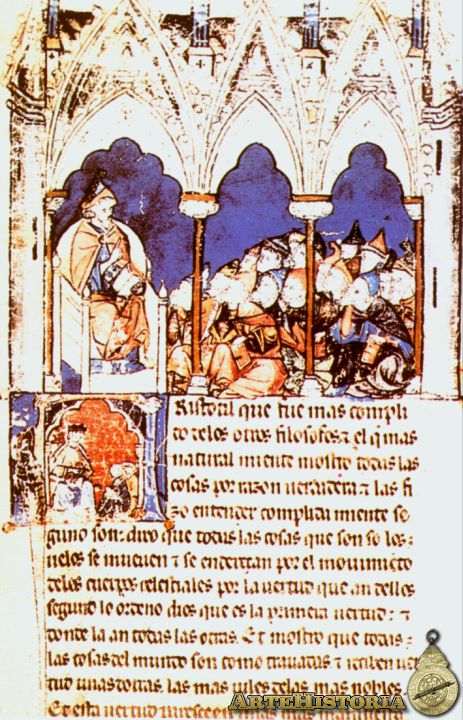 Ristotil que fue mas compli
do delos otros filosofos τ el q̃ mas
natural miente mostro todas las
cosas por razon uerdadera τ las fi
zo entender complida miente se
gund son: dixo que todas las cosas que son so los
cielos se mueuen τ se enderecan por el mouimiẽto
delos cuerpos celestiales por la uertud que an dellos
segund lo ordeno dios que es la primera uertud: τ
donde la an todas las otras. Et mostro que todas
las cosas del mundo son como trauadas τ reciben uer
tud unas dotras. las mas uiles delas mas nobles.
Et esta uertud paresce en unas mas
ARTEHISTORIA